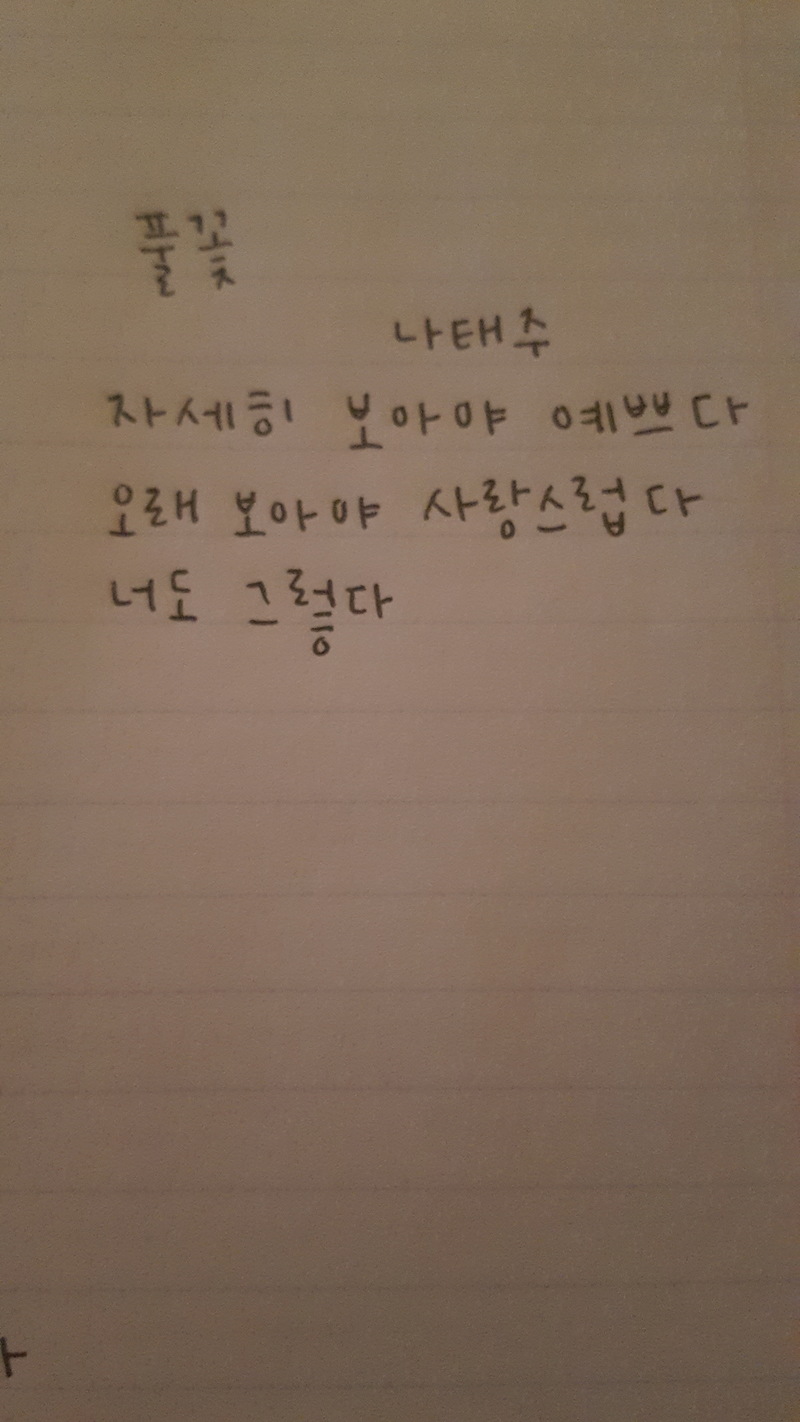 풀꽃
나태주
자세히 보아야 예쁘다
오래 보아야 사랑스럽다
너도 그렇다